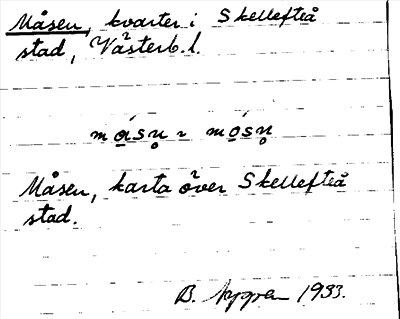 Måsen, kvarter i Skellefteå
stad, Västerb. l.
måsn̥ ~ mosn̥
Måsen, karta över Skellefteå
stad.
B. 1933.